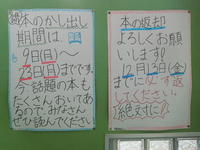 本のかし出し
期間は
9日(月)〜
23日(月)までです。
今話題の本も
たくさんおいてあ
るので、みなさん
ぜひ読んでください
本の返却
よろしくお願
いします!!
12月13日(金)
までに必ず返
してください。
絶対に